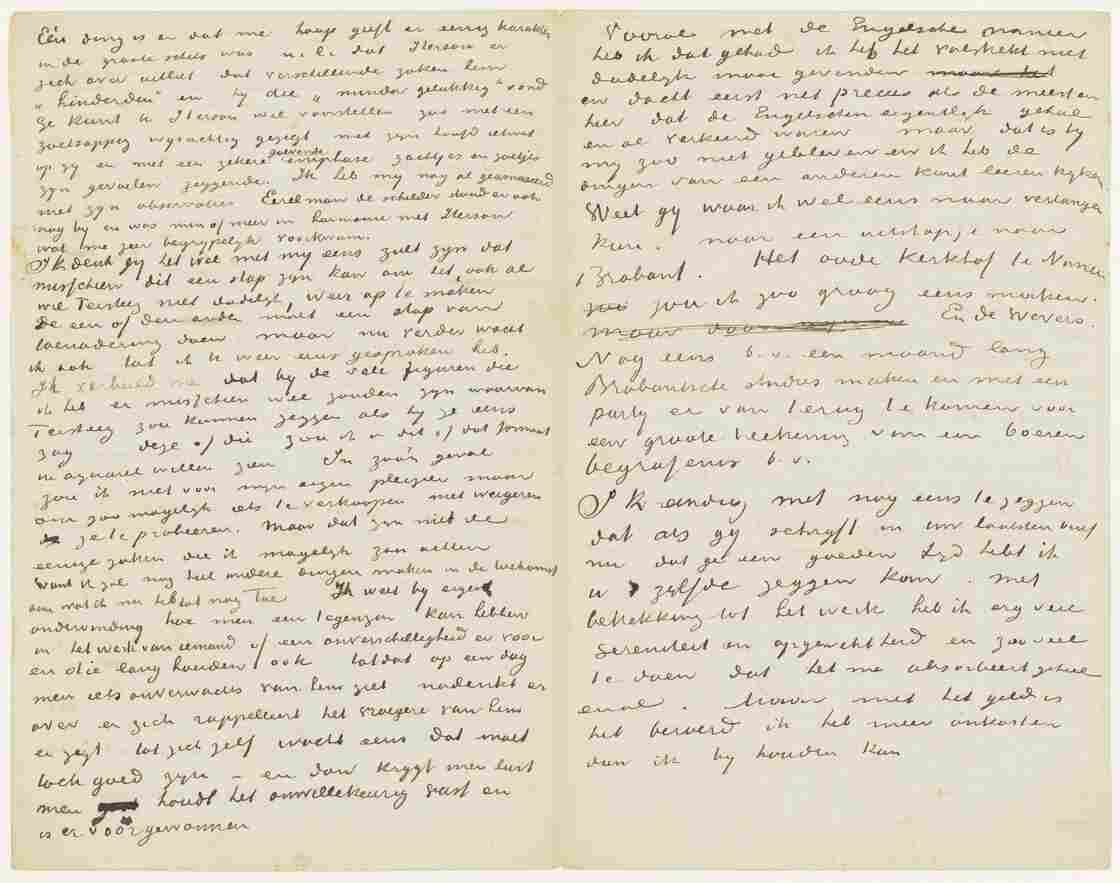 Één ding is er dat me hoop geeft er eenig karakter
in de groote schets was n.l. dat Iterson er
zich over uitliet dat verschillende zaken hem
„hinderden” en hij die „minder gelukkig” vond
Ge kunt U Iterson wel voorstellen zoo met een
zoetsappig wijsachtig gezegt met zijn hoofd ietwat
op zij en met een zekere zoevende emphase zachtjes en zoetjes
zijn gevoelen zeggende. Ik heb mij nog al geamuseerd
met zijn observaties Eerelman de schilder stond er ook
nog bij en was min of meer in harmonie met Iterson
wat me zeer begrijpelijk voorkwam.
Ik denk gij het wel met mij eens zult zijn dat
misschien dit een stap zijn kan om het, ook al
wil Tersteeg niet dadelijk, weer op te maken
De een of den ander moet een stap van
toenadering doen maar nu verder wacht
ik ook tot ik U weer eens gesproken heb.
Ik verbeeld me dat bij de vele figuren die
ik heb er misschien wel zouden zijn waarvan
Tersteeg zou kunnen zeggen als hij ze eens
zag deze of die zou ik in dit of dat formaat
in aquarel willen zien In zoo'n geval
zou ik niet voor mijn eigen pleizier maar
om zoo mogelijk iets te verkoopen niet weigeren
ze te probeeren. Maar dat zijn niet de
eenige zaken die ik mogelijk zou achten
want ik zal nog heel andere dingen maken in de toekomst
dan wat ik nu heb tot nog Toe Ik weet bij eigen
ondervinding hoe men een tegenzin kan hebben
in het werk van iemand of een onverschilligheid er voor
en die lang houden ook totdat op een dag
men iets onverwachts van hem ziet nadenkt er
over en zich rappelleert het vroegere van hem
en zegt tot zich zelf wacht eens dat moet
toch goed zijn – en dan krijgt men lust
men houdt het onwillekeurig vast en
is er vóór gewonnen
Vooral met de Engelsche manier
heb ik dat gehad ik heb het volstrekt niet
dadelijk mooi gevonden maar het
en dacht eerst net precies als de meesten
hier dat de Engelschen eigentlijk geheel
en al verkeerd waren maar dat is bij
mij zoo niet gebleven en ik heb de
dingen van een anderen kant leeren kijken
Weet gij waar ik wel eens naar verlangen
kan. naar een uitstapje naar
Brabant. Het oude kerkhof te Nunen
zou zou ik zoo graag eens maken.
maar daar En de wevers.
Nog eens b.v. een maand lang
Brabantsche studies maken en met een
partij er van terug te komen voor
een groote teekening van een boeren
begrafenis b.v.
Ik eindig met nog eens te zeggen
dat als gij schrijft in uw laatsten brief
nu dat ge een goeden tijd hebt ik
u 't zelfde zeggen kan. met
betrekking tot het werk heb ik erg veel
sereniteit en opgewektheid en zooveel
te doen dat het me absorbeert geheel
en al. Maar met het geld is
het beroerd ik heb meer onkosten
dan ik bij houden kan